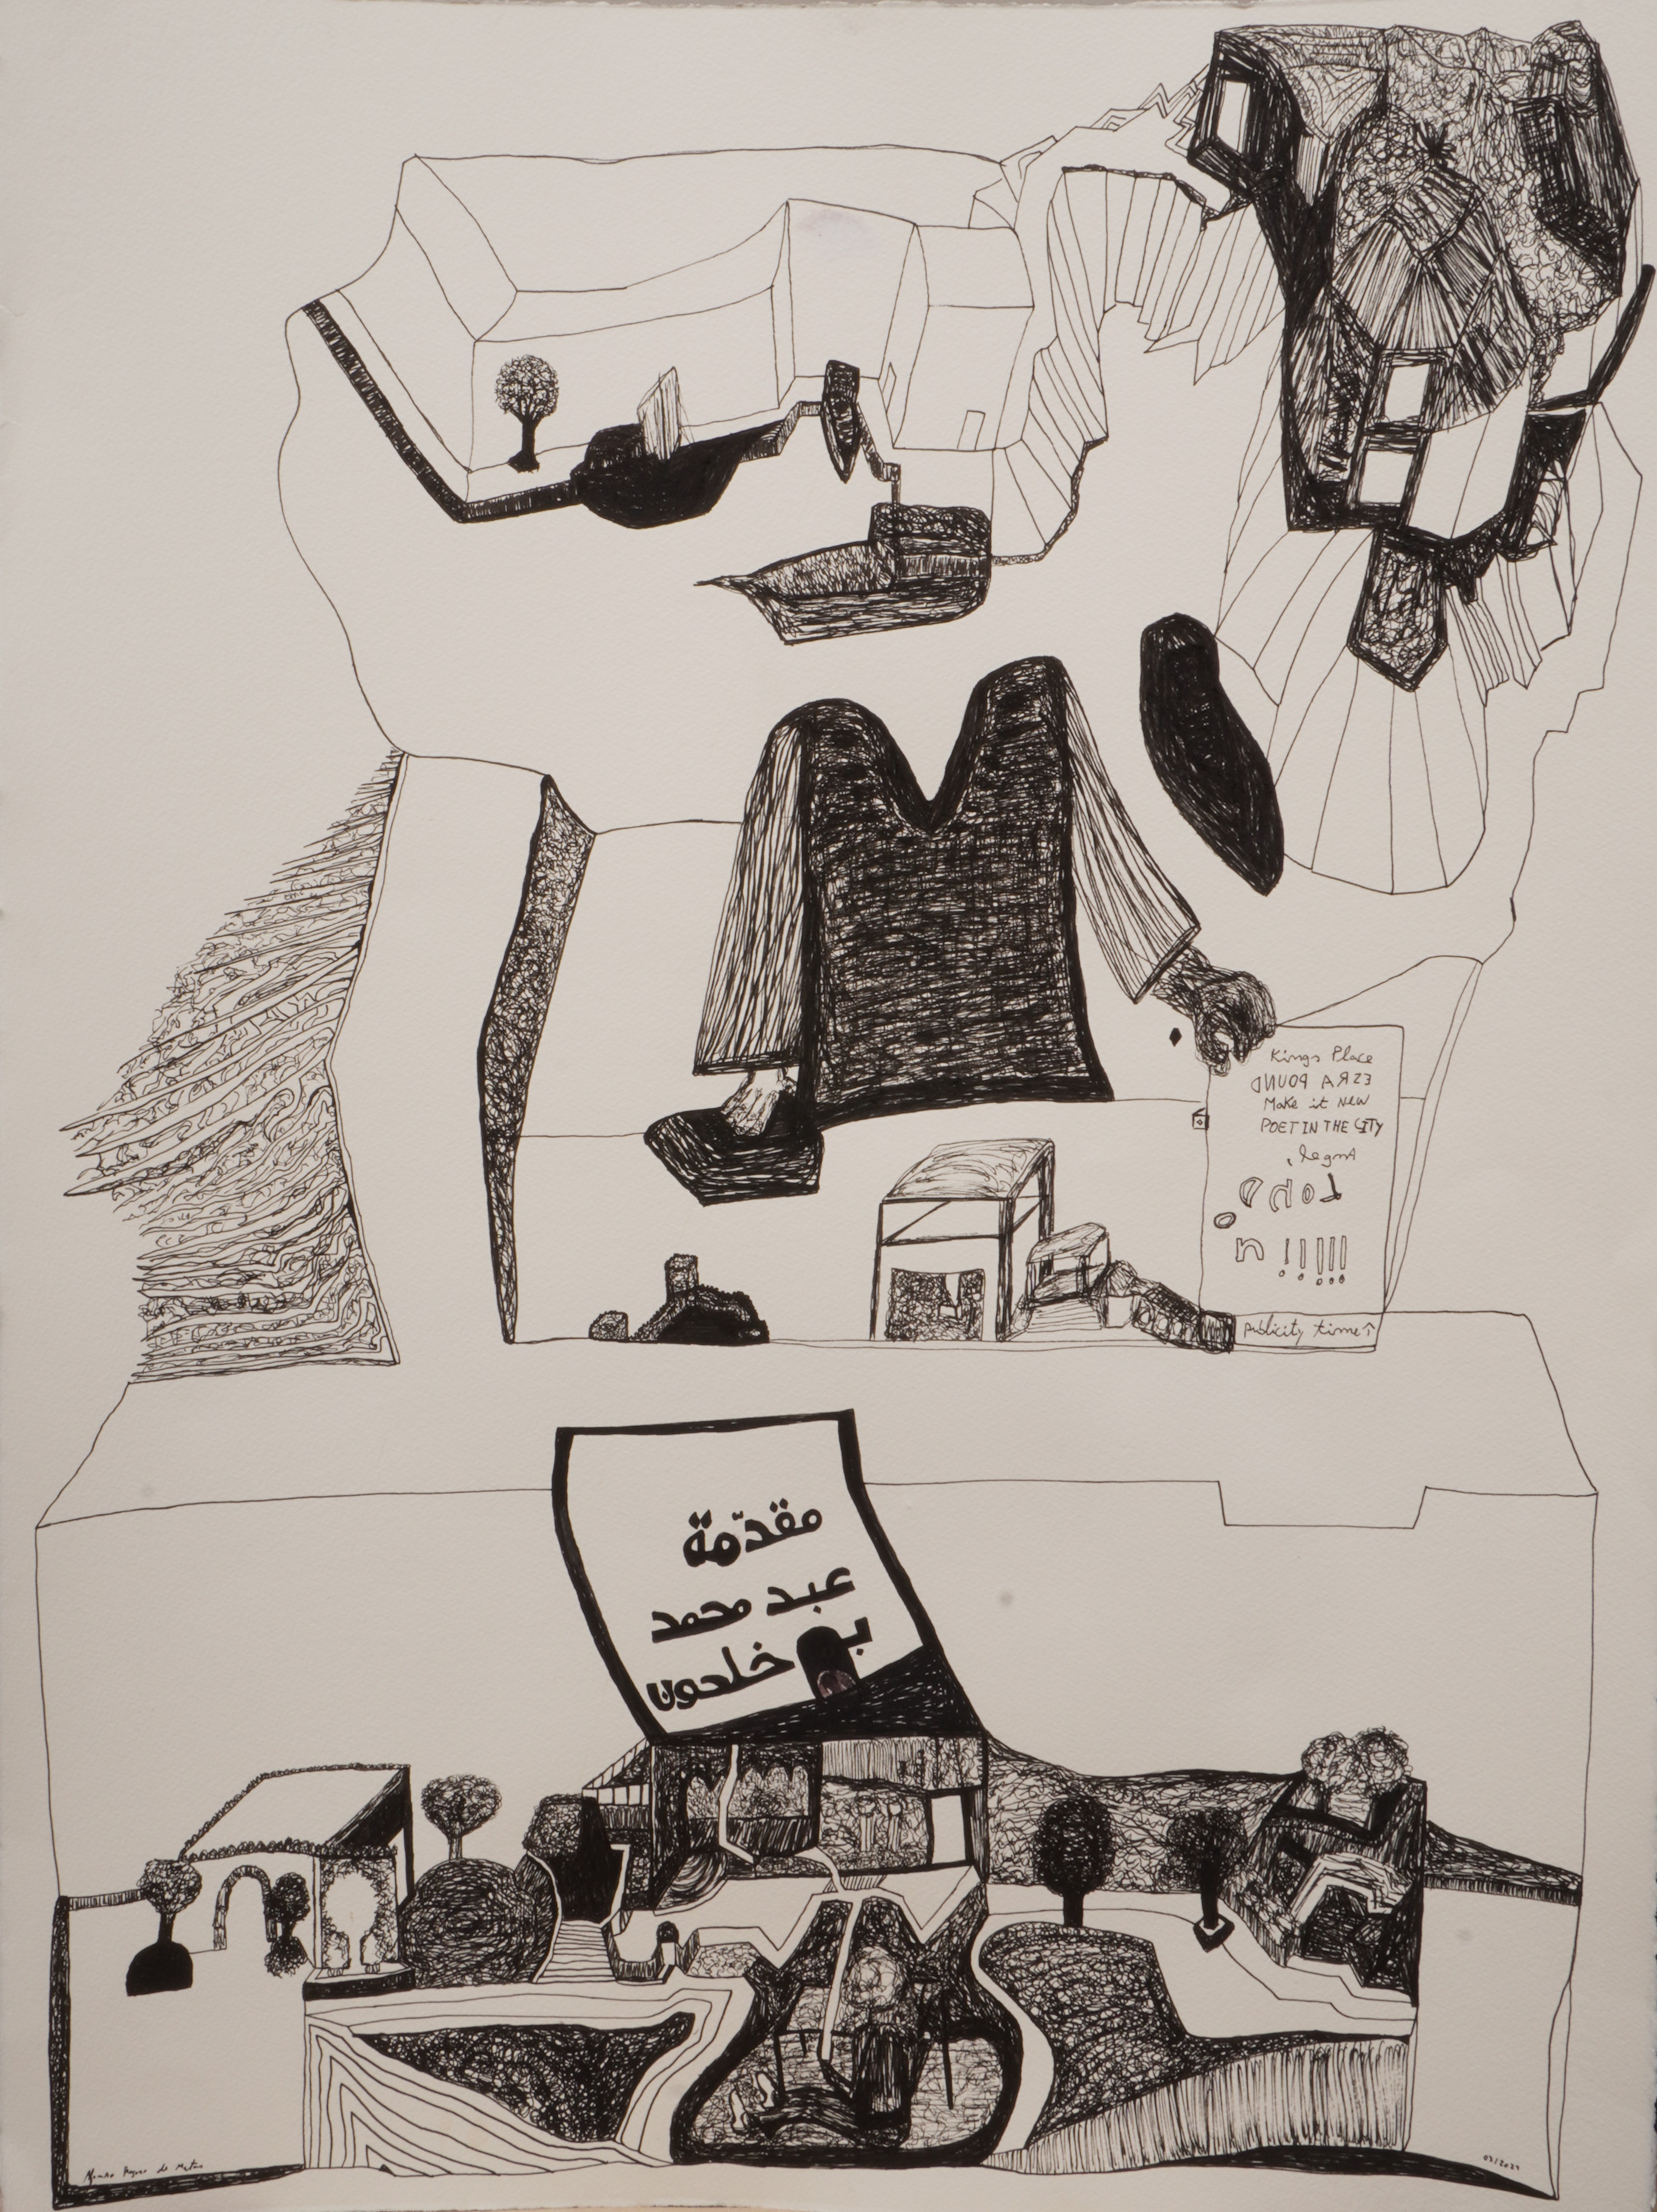 Kings Place
ESRA POUND
Make it New
POET IN THE CITY
Angel,
Lobo
n !!!!!
publicity time↑
مقدّمة
عبد محمد
بن خلدون
03/2021